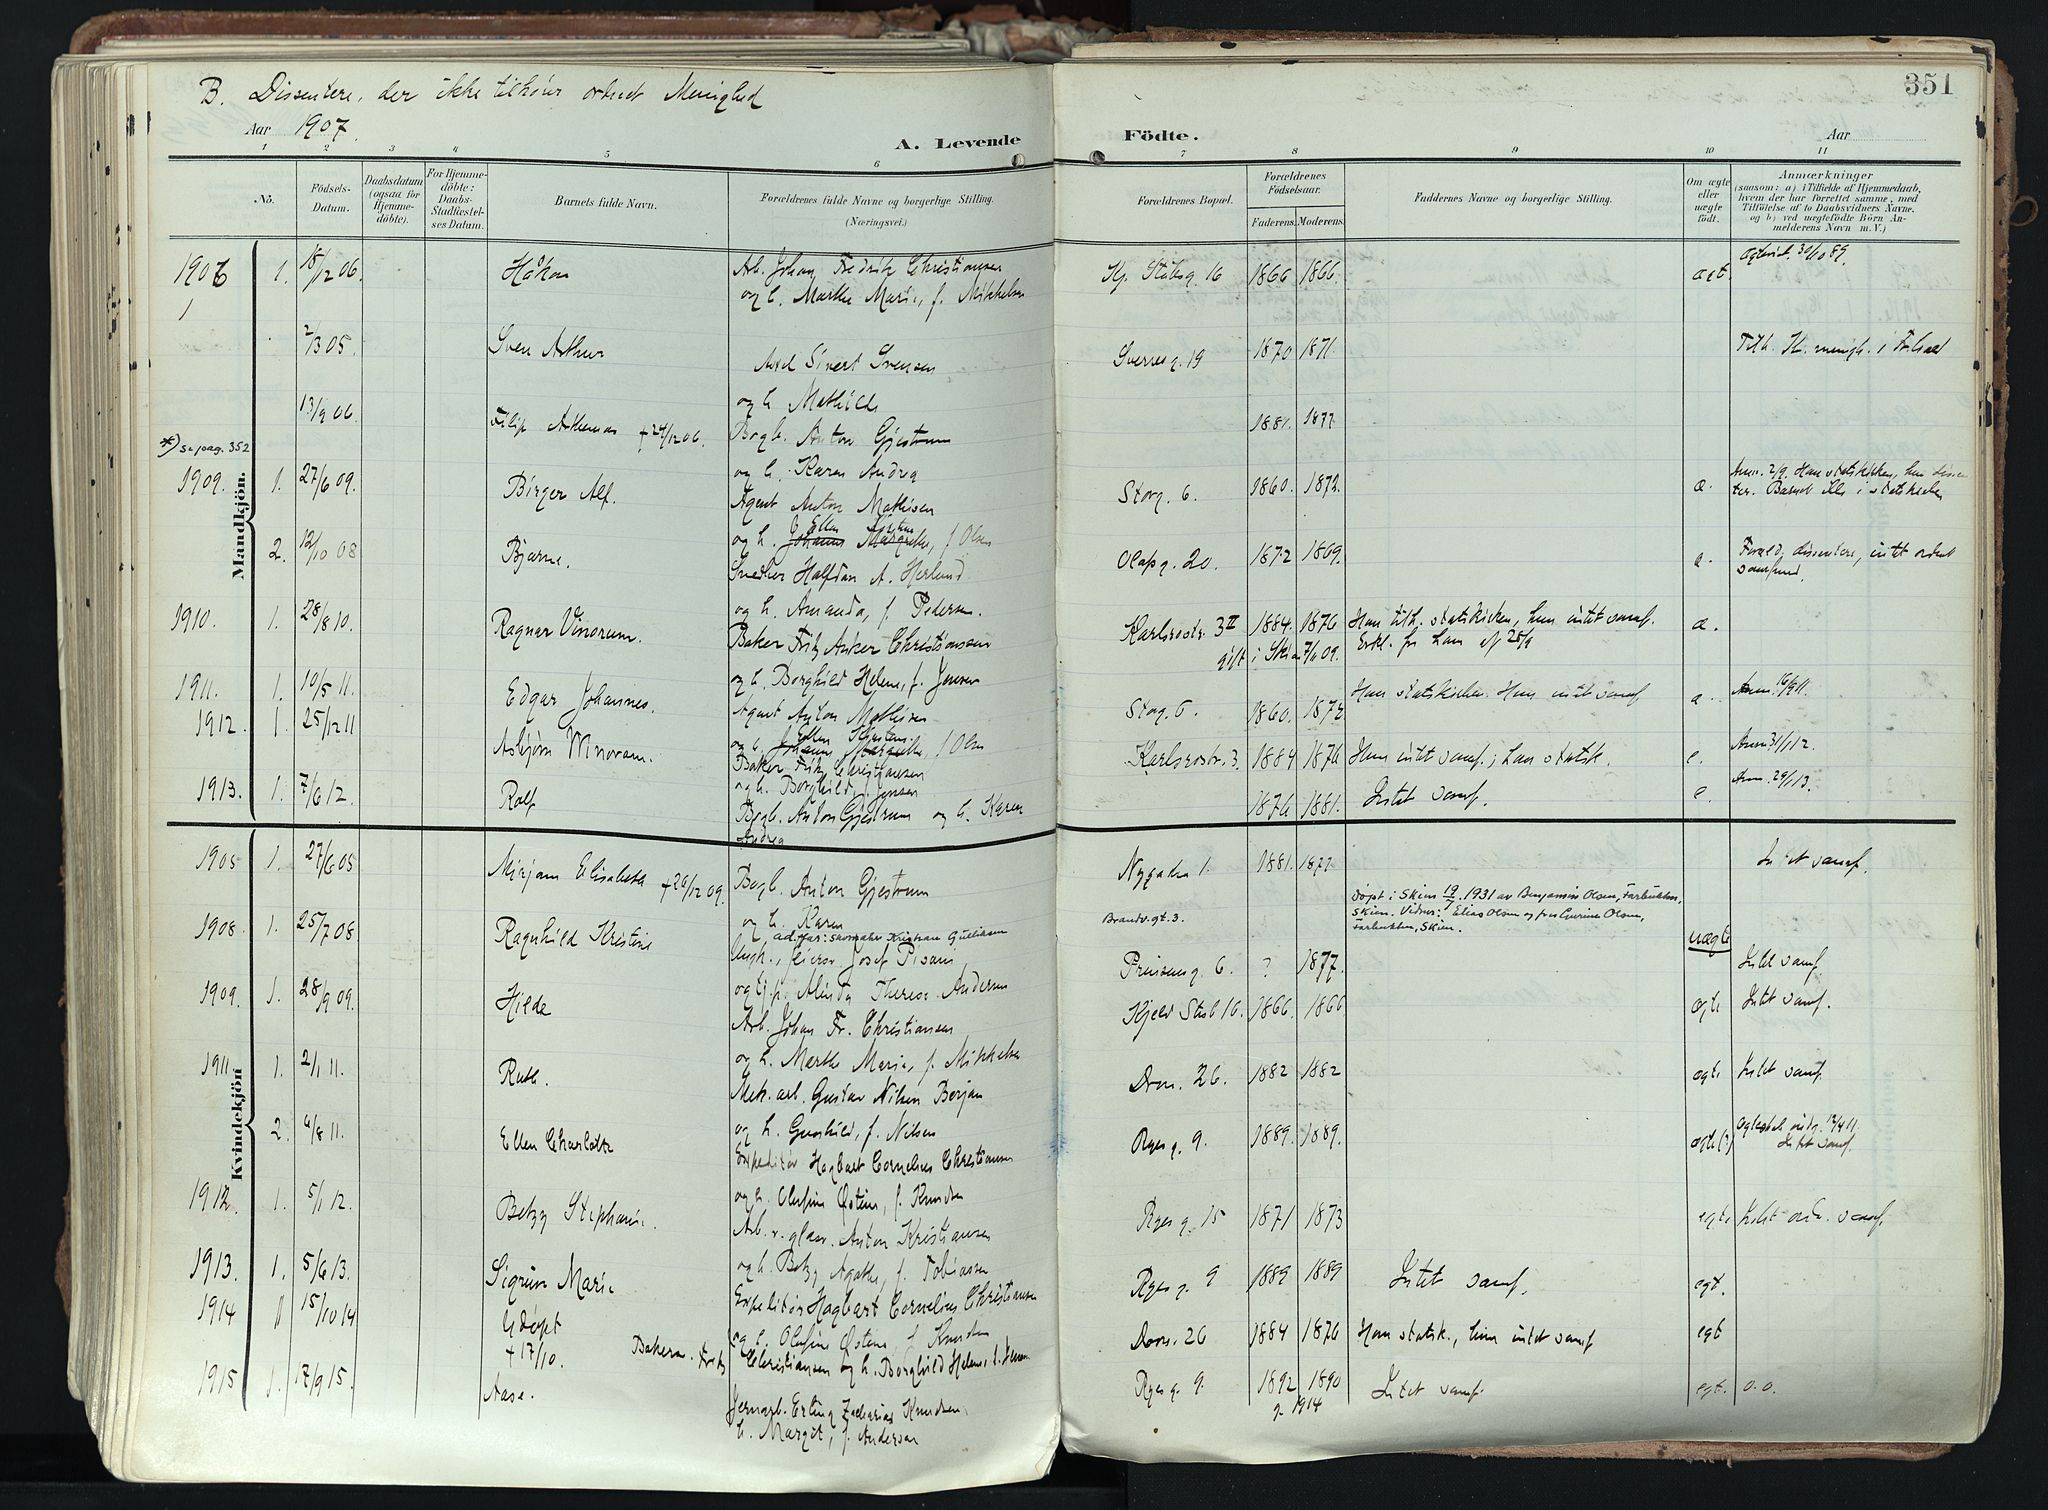 B. Dissentere, der ikke tilhører ordnet Menighed
351
Aar 1907.
A. Levende
Födte.
Aar
1 2 3 4 5 6 7 8 9 10 11
No.
Födsels-Datum.
Daabsdatum (ogsaa for Hjemme-döbte).
For Hjemme-döbte: Daabs-Stadfæstel-ses Datum.
Barnets fulde Navn.
Forældrenes fulde Navne og borgerlige Stilling. (Næringsvei.)
Forældrenes Bopæl.
Forældrenes Födselsaar.
Faderens. Moderens.
Faddernes Navne og borgerlige Stilling.
Om ægte eller uægte födt.
Anmærkninger
(saasom: a) i Tilfælde af Hjemmedaab, hvem der har forrettet samme, med Tilföielse af to Daabsvidners Navne, og b) ved uægtefödte Börn An-melderens Navn m. V.)
Mandkjön.
1906 1. 18/12 06. Håkon Arb. Johan Fredrik Christiansen Kj. Stubsg. 16 1866 1866. ægt.
og h. Marthe Marie, f. Mikkelsen
1
2/3 05 Sven Arthur Axel Sivert Svensen Sverresg. 19 1870 1871.
og h. Mathilde
13/9 06 Filip + 24/12 06. Bogb. Anton Gjestrum 1881. 1877.
*) Se pag. 352
og h. Karen Andrea
1909. 1. 27/6 09. Birger Alf. Agent Anton Mathisen Storg. 6. 1860. 1872. æ. Anm. 2/9. Han statskirken, hun dissenter. Barnet ikke i statskirken
og h. Ellen Kirstine Johanne Margrethe, f. Olsen
2. 12/10 08 Bjarne. Snedker Halfdan A. Herlund Olafsg. 20. 1872 1869. e. Foræld. dissentere, intet ordnet samfund.
og h. Amanda, f. Pedersen.
1910. 1. 28/8 10. Ragnar Vinorum. Baker Fritz Anker Christiansen Karlsrostr. 3 II 1884. 1876 Han tilh. statskirken, hun intet samf. æ.
gift i Skien 7/11 09. Erkl. fra ham af 25/9
og h. Borghild Helene, f. Jensen
1911. 1. 10/5 11. Edgar Johannes. Agent Anton Mathisen Storg. 6. 1860. 1872 Han statskirken. Hun intet samf. Anm. 16/9 11.
og h. Ellen Kirstine Johanne Margrethe, f. Olsen
1912. 1. 25/12 11 Asbjørn Vinoram. Baker Fritz Christiansen Karlsrostr. 3. 1884 1876 Hun intet samf.; han statsk. e. Anm. 31/1 12.
og h. Borghild, f. Jensen
1913. 1. 7/6 12. Rolf Bogb. Anton Gjestrum og h. Karen 1876 1881. Intet samf. e. Anm. 29/1 13.
Andrea
Kvindekjön
1905 1. 27/6 05 Mirjam Elisabeth + 26/12 09. Bogb. Anton Gjestrum 1881. 1877. Intet samf.
og h. Karen
Brandv.gt. 3.
Døpt i Skien 19/7 1931 av Benjamin Olsen, Farbukten,
Skien. Vidner: Elias Olsen og fru Gurine Olsen,
Farbukten, Skien.
ad. far: Skomaker Kristian Gulliksen
1908 1. 25/7 08 Ragnhild Kristine Ungk., Josef Prinsensg. 6. ? 1877. uægte Intet samf.
og pi. Alinda Therese Andersen
1909. 1. 28/9 09. Hilde Arb. Johan Fr. Christiansen Kjeld Stub 16. 1866. 1866 ægte Intet samf.
og h. Marthe Marie, f. Mikkelsen
1911 1. 2/1 11. Ruth. Mek. arb. Gustav Nilsen Borjan Dron. 26. 1882 1882 ægte Intet samf.
og h. Gunhild, f. Nilsen
2. 6/8 11. Ellen Charlotte Expeditør Hagbart Cornelius Christiansen Ryesg. 9. 1889. 1889. ægte(?) Intet samf.
og h. Olufine Østine, f. Knudsen
1912. 1. 5/1 12. Betzy Stephanie. Arb. v. glasv. Anton Kristiansen Ryesg. 15 1871 1873 egte Intet ord. samf.
og h. Betzy Agathe, f. Tobiassen
1913. 1. 5/6 13. Sigrun Marie Expeditør Hagbart Cornelius Christiansen Ryesg. 9 1889 1889 Intet samf. egt.
og h. Olufine Østine, f. Knudsen
1914 1 15/10 14 Udøpt + 17/10. Bakerm. Fritz Christiansen og h. Borghild Helene, f. Jensen Dron. 26 1884 1876 Han statsk., hun intet samf egt
1915 1. 17/9 15. Aase. Jernarb. Erling Zacharias Knudsen, Ryesg. 9. 1892 1890 Intet samf. egt. o. o.
g. 1914
h. Margit, f. Andersen